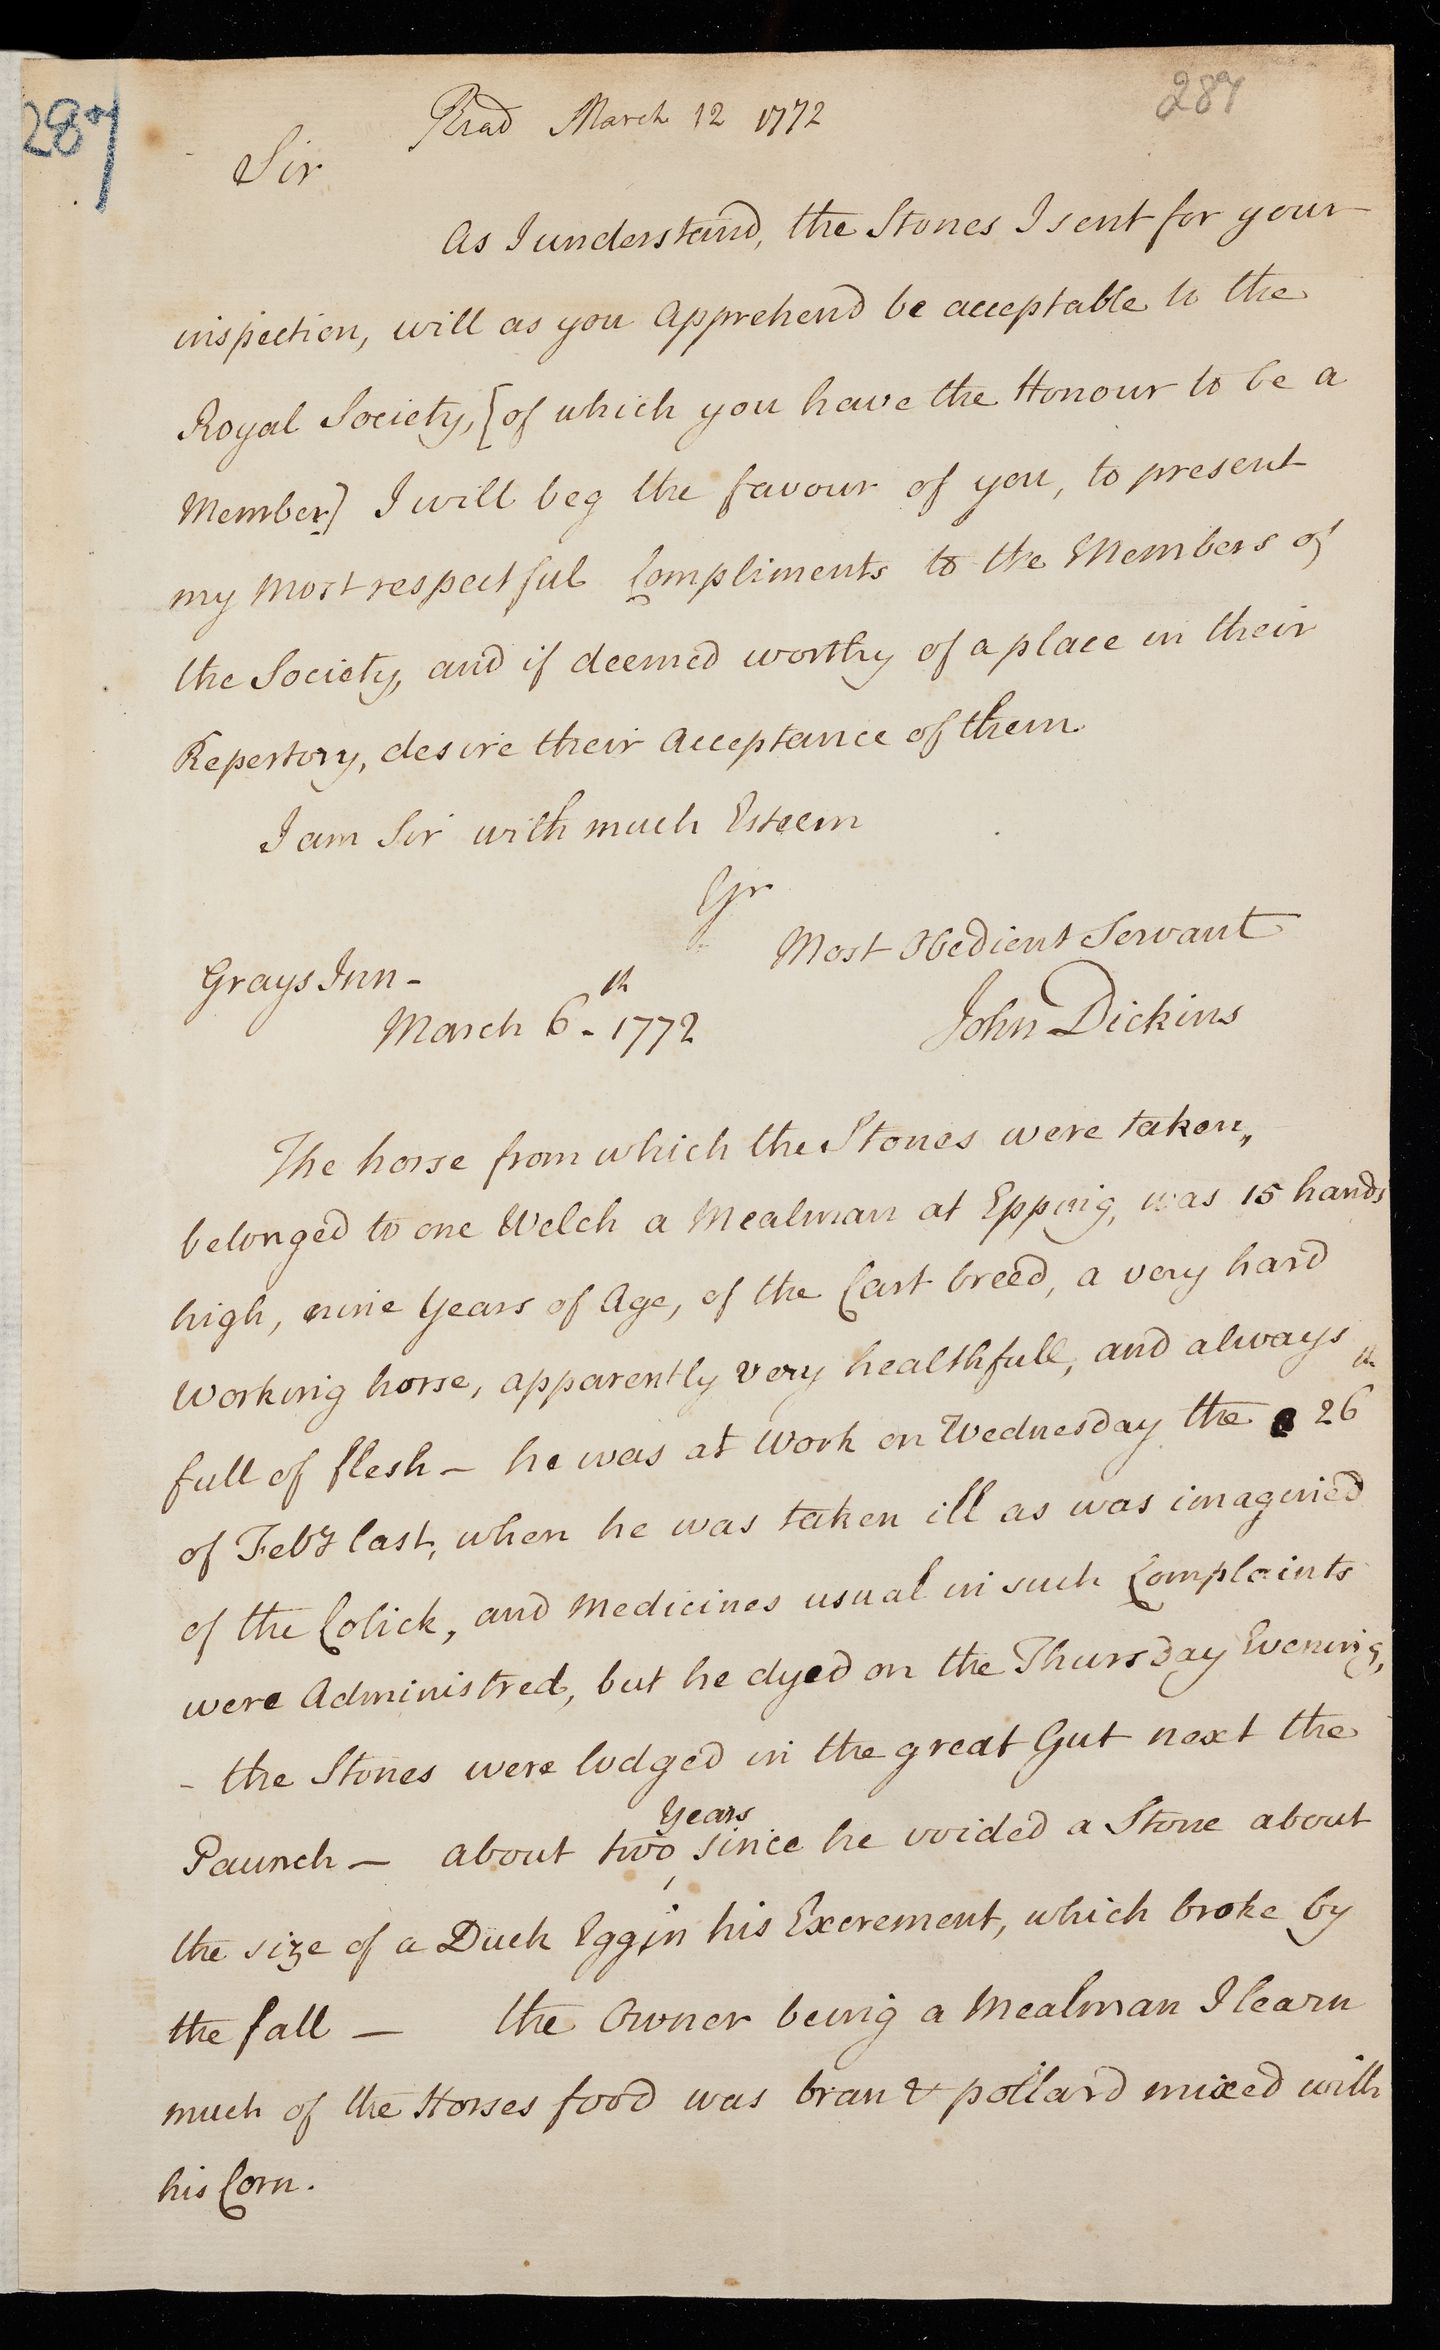 287
287
Read March 12 1772
Sir
As I understand, the Stones I sent for your
inspection, will as you apprehend be acceptable to the
Royal Society, [of which you have the Honour to be a
Member] I will beg the favour of you, to present
my most respectful Compliments to the Members of
the Society, and if deemed worthy of a place in their
Repertory, desire their Acceptance of them
I am Sir with much Esteem
Yr
Most Obedient Servant
Grays Inn -
March 6th - 1772
John Dickins
The horse from which the Stones were taken,
belonged to one Welch a Mealman at Epping, was 15 hands
high, nine Years of Age, of the Cart breed, a very hard
Working horse, apparently very healthfull, and always
full of flesh - he was at Work on Wednesday the 26th
of Feby last, when he was taken ill as was imagined
of the Colick, and Medicines usual in such Complaints
were Administred, but he dyed on the Thursday Evening,
- the Stones were lodged in the great Gut next the
Paunch - about two Years since he voided a Stone about
the size of a Duck Egg in his Excrement, which broke by
the fall - the Owner being a Mealman I learn
much of the Horses food was bran & pollard mixed with
his Corn.